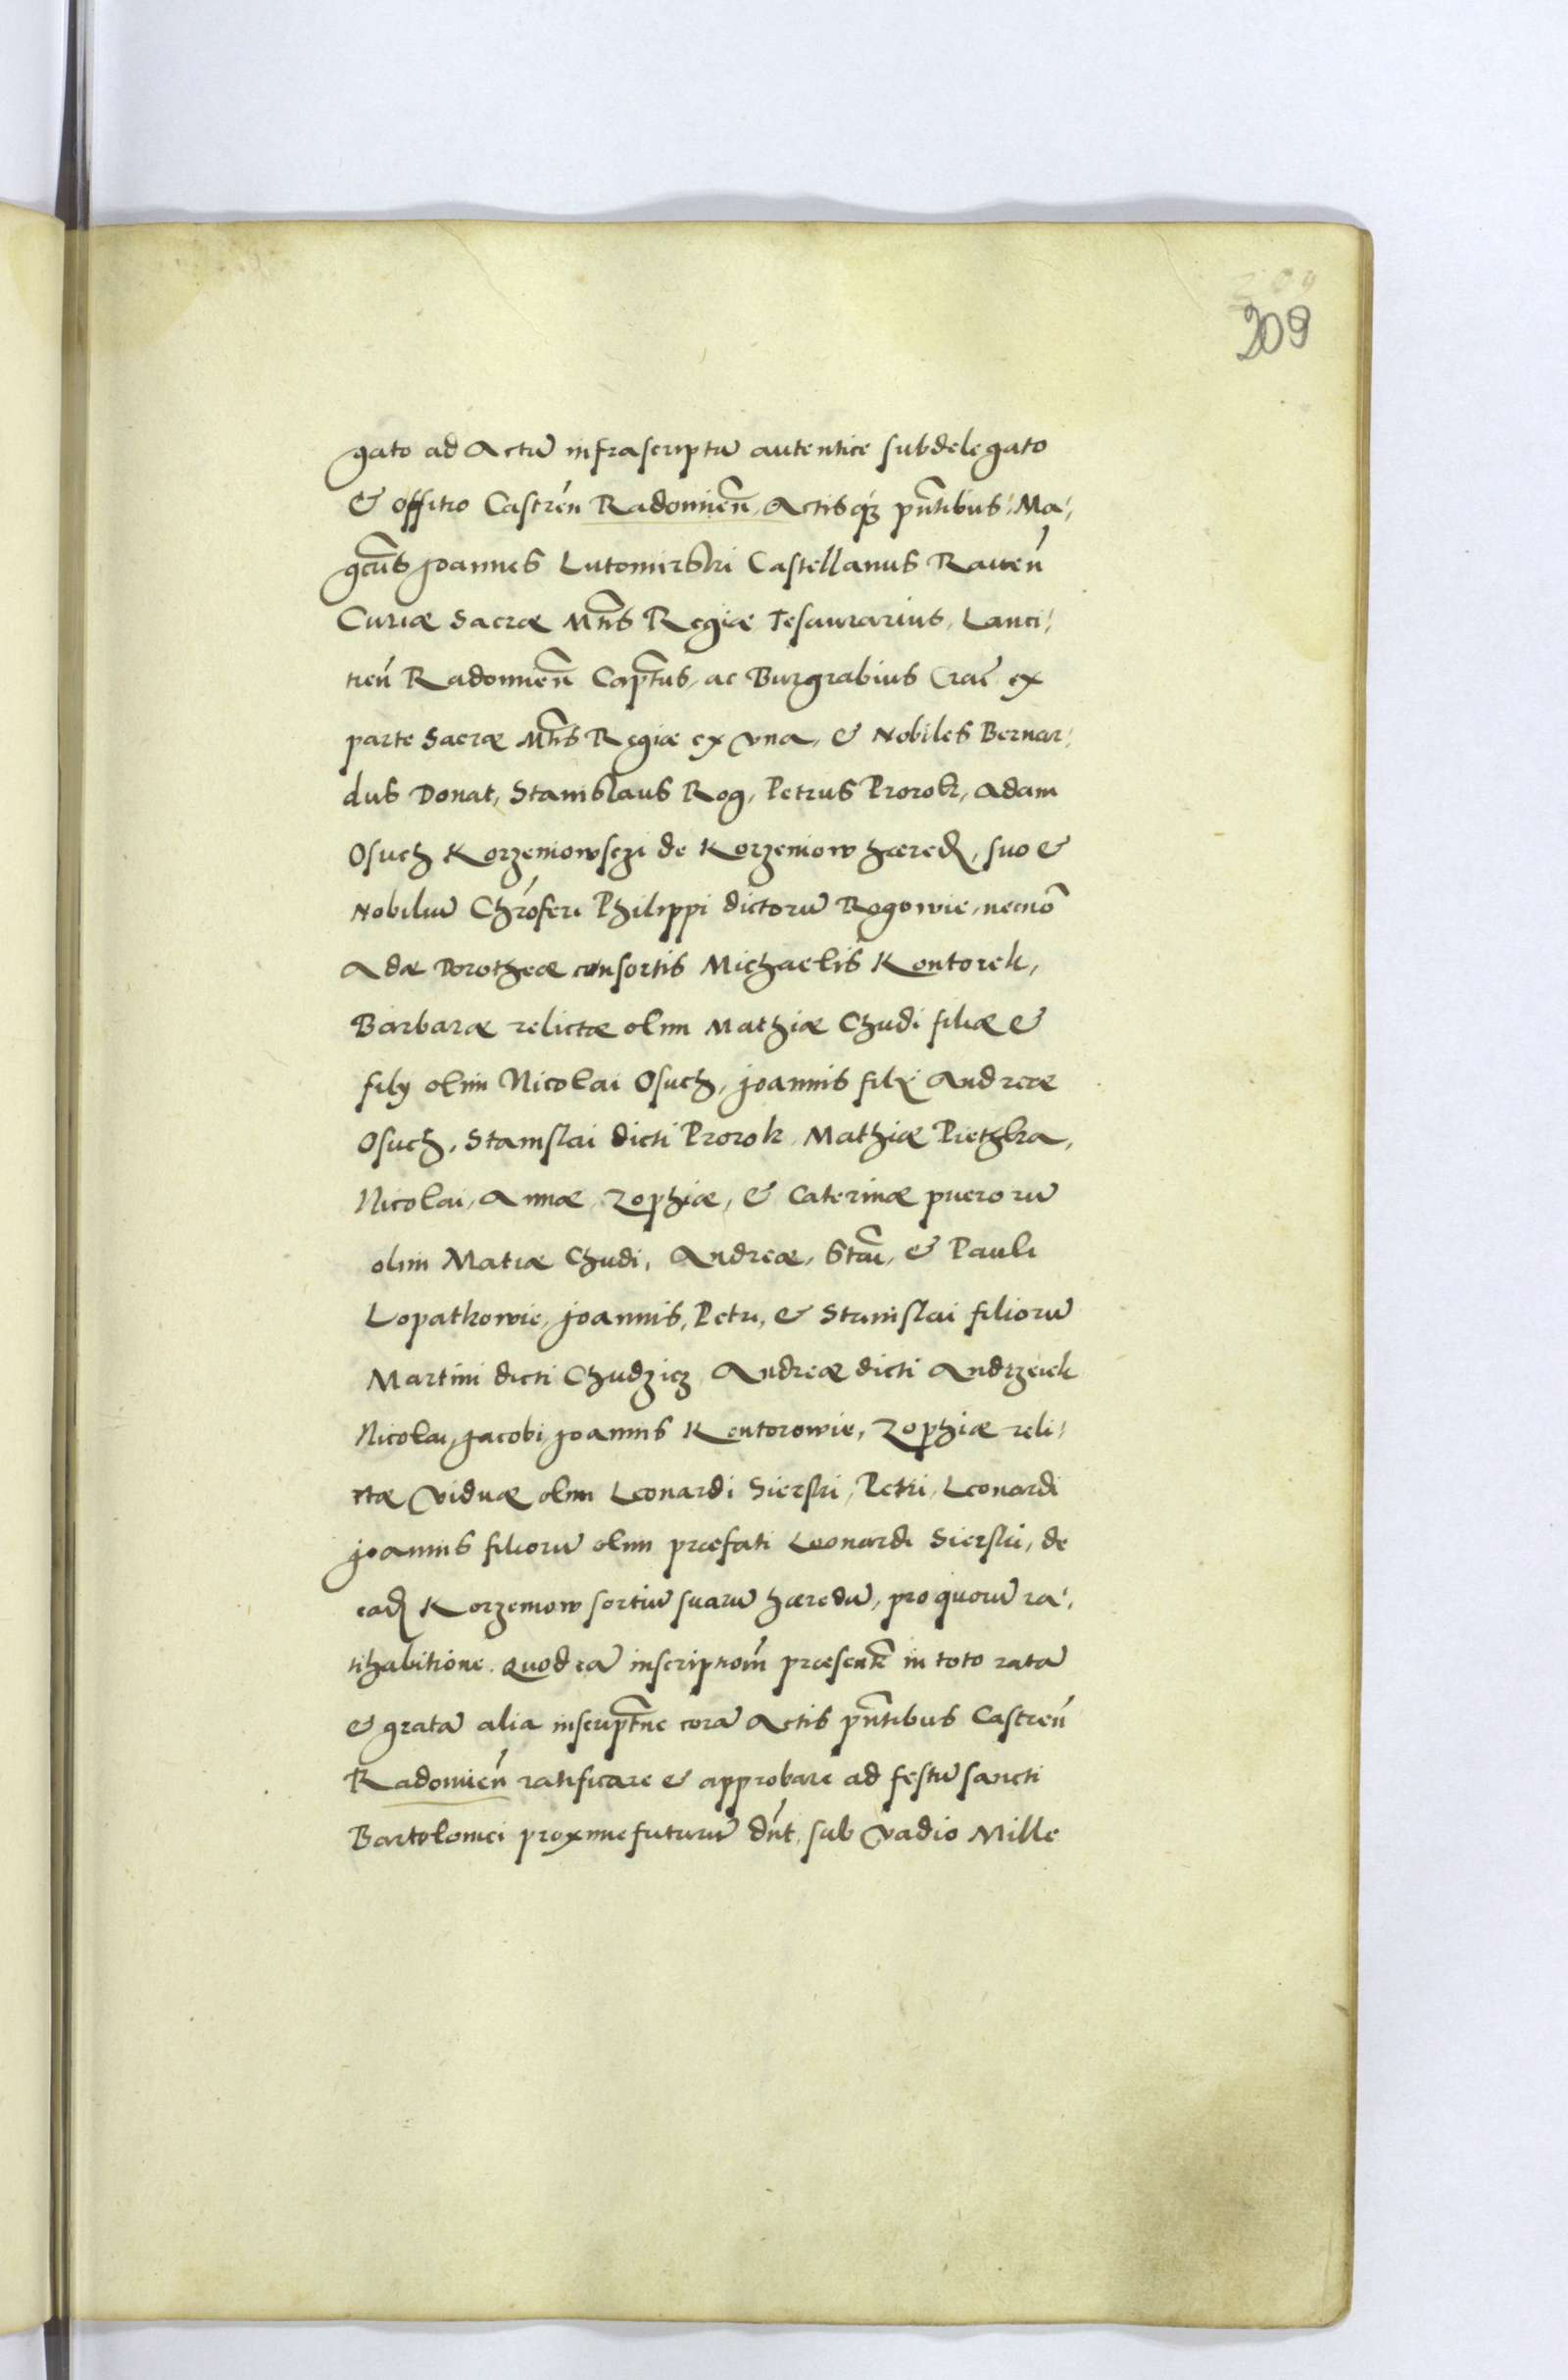 209
209
gato ad Actũ infrascriptũ autentice subdelegato
& offitio Castreń Radomień, Actisq́ꝫ pñtibus: Ma:
gcũs Joannes Lutomirski Castellanus Raueń
Curiæ Sacræ Mtĩs Regiæ Tesaurarius, Lanci:
tień Radomień Capt̃us, ac Burgrabius Crac̃ ex
parte Sacræ Mtĩs Regiæ ex vna, & Nobiles Bernar:
dus Donat, Stanislaus Rog, Petrus Prorok, Adam
Osuch Korzeniowsczi de Korzeniow hæred, suo &
Nobiliũ Chróferi Philippi dictorũ Rogowie, necnõ
Adæ Dorotheæ consortis Michaelis Kontorek,
Barbaræ relictæ olim Mathiæ Chudi filiæ &
filÿ olim Nicolai Osuch, Joannis filÿ Andreæ
Osuch, Stanislai dicti Prorok Mathiæ Pietzka,
Nicolai, Annæ Zophiæ, & Caterinæ puerorũ
olim Matiæ Chudi, Andreæ, Stañi, & Pauli
Lopatkowie, Joannis, Petri, & Stanislai filiorũ
Martini dicti Chudzicz Andreæ dicti Andrzeiek
Nicolai, Jacobi, Joannis Kentorowie, Zophiæ reli:
ctæ viduæ olim Leonardi Sierski, Petri, Leonardi
Joannis filiorũ olim præfati Leonardi Sierski, de
ead Korzeniow sortiũ suarũ hæredũ, pro quorũ ra:
tihabitione. Quod eã inscriptioñi præsent̃ in toto ratã
& gratã alia inscript̃ne corã Actis pñtibus Castreń
Radomień ratificare & approbare ad festũ sancti
Bartolomei proxime futurũ dńt, sub vadio Mille